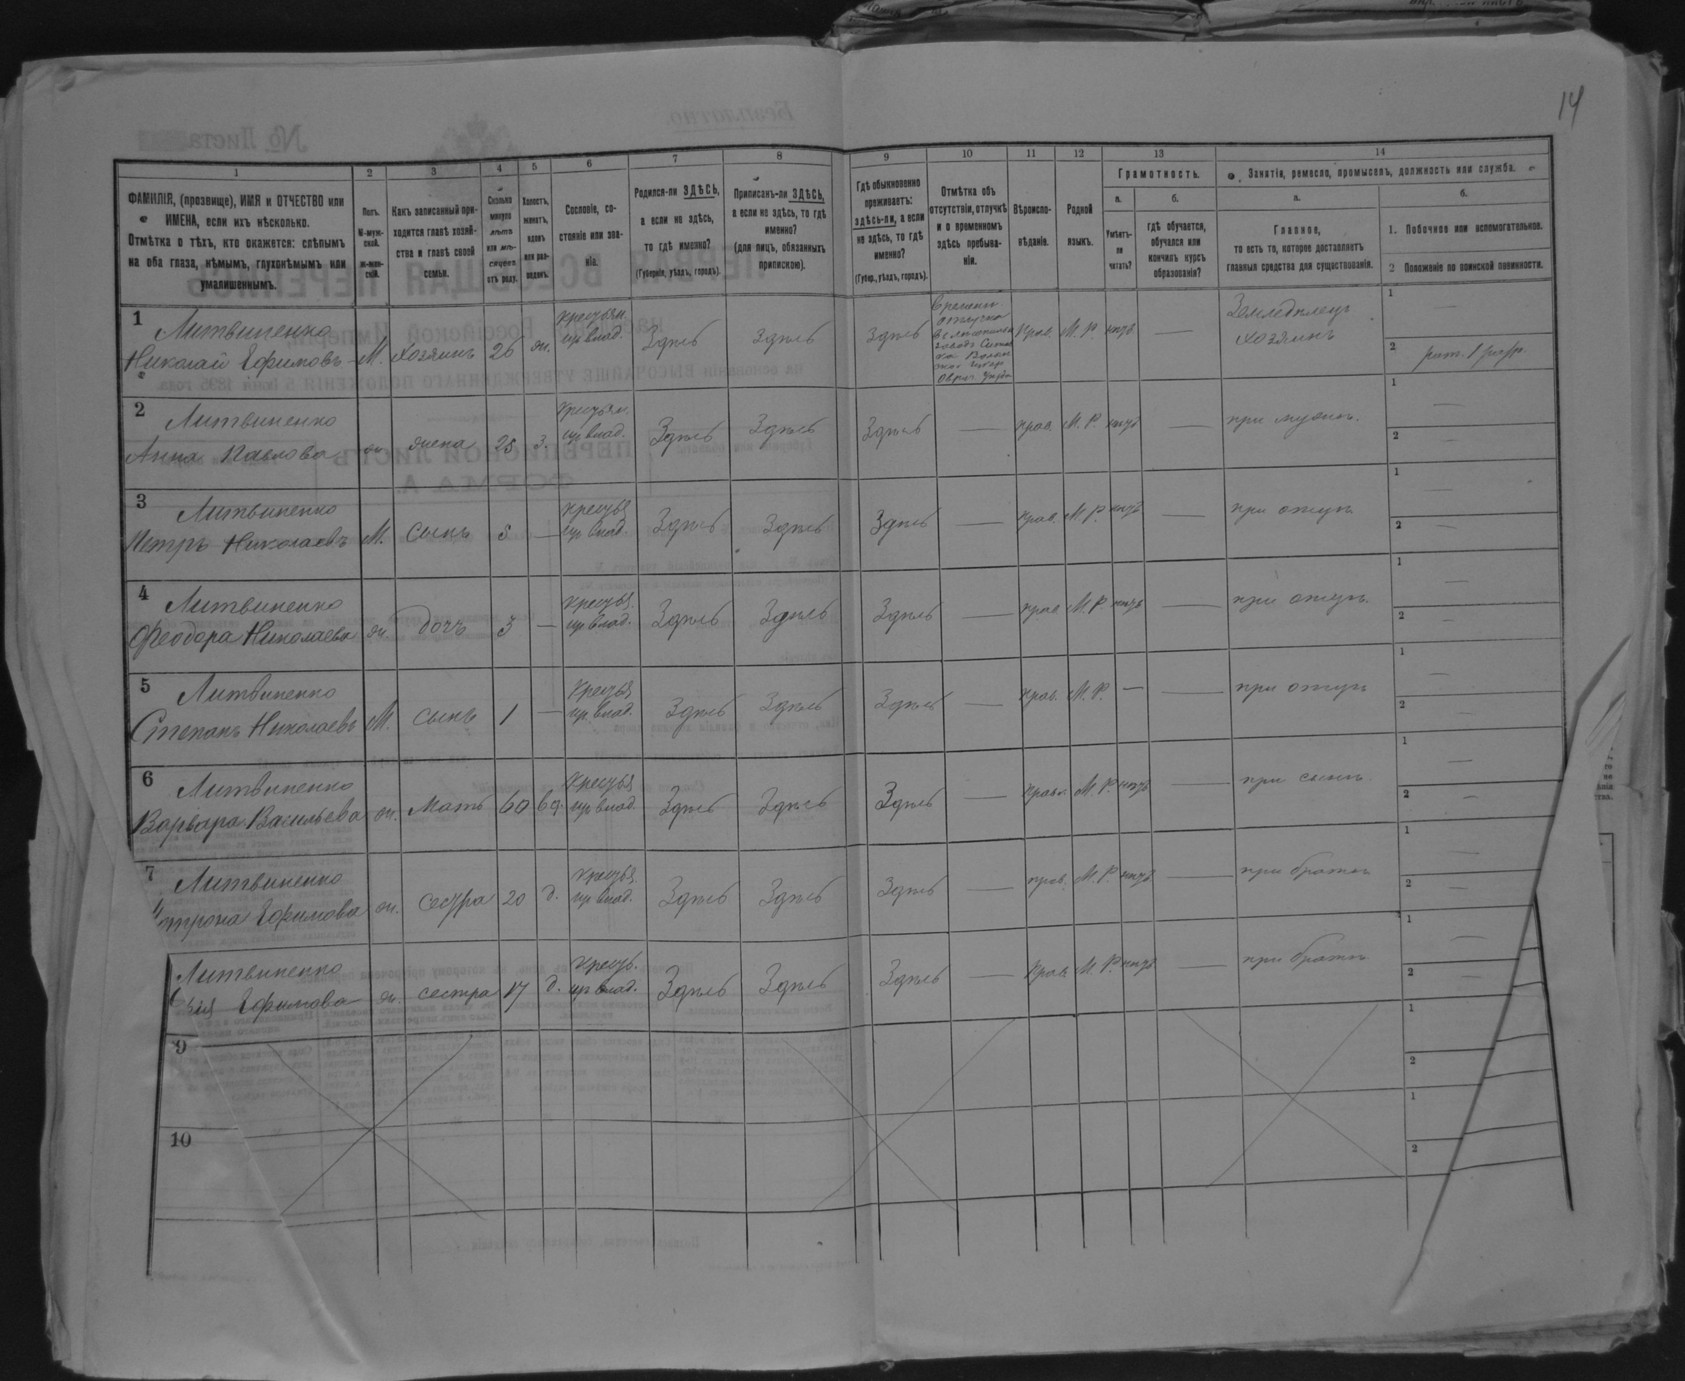 14
1 2 3 4 5 6 7 8 9 10 11 12 13 14
ФАМИЛІЯ, (прозвище), ИМЯ и ОТЧЕСТВО или
ИМЕНА, если ихъ нѣсколько.
Отмѣтка о тѣхъ, кто окажется: слѣпымъ
на оба глаза, нѣмымъ, глухонѣмымъ или
умалишеннымъ.
Полъ.
М-муж-
ской.
ж-жен-
скій.
Какъ записанный при-
ходится главѣ хозяй-
ства и главѣ своей
семьи.
Сколько
минуло
лѣтъ
или мѣ-
сяцевъ
отъ роду.
Холостъ,
женатъ,
вдовъ
или раз-
веденъ.
Сословіе, со-
стояніе или зва-
ніе.
Родился-ли ЗДѢСЬ,
а если не здѣсь,
то гдѣ именно?
(Губернія, уѣздъ, городъ).
Приписанъ-ли ЗДѢСЬ,
а если не здѣсь, то гдѣ
именно?
(для лицъ, обязанныхъ
припискою).
Гдѣ обыкновенно
проживаетъ:
здѣсь-ли, а если
не здѣсь, то гдѣ
именно?
(Губер., уѣздъ, городъ).
Отмѣтка объ
отсутствіи, отлучкѣ
и о временномъ
здѣсь пребыва-
ніи.
Вѣроиспо-
вѣданіе.
Родной
языкъ.
Грамотность.
а.
Умѣетъ-
ли
читать?
б.
гдѣ обучается,
обучался или
кончилъ курсъ
образованія?
Занятія, ремесло, промыселъ, должность или служба.
а.
Главное,
то есть то, которое доставляетъ
главныя средства для существованія.
б.
1. Побочное или вспомогательное.
2 Положеніе по воинской повинности.
1 Литвиненко
Николай Ефимовъ М. хозяинъ 26 ж. крестьян. Здѣсь Здѣсь Здѣсь прав. М. Р. Земледѣлецъ
хозяинъ
2 Литвиненко
Анна Павлова ж. жена 25 з. крестьян. Здѣсь Здѣсь Здѣсь — прав. М. Р. — при мужѣ
3 Литвиненко
Петръ Николаевъ М. сынъ 5 — Здѣсь Здѣсь Здѣсь — прав. М. Р. — при отцѣ
4 Литвиненко
Феодора Николаева ж. дочь 3 — Здѣсь Здѣсь Здѣсь — прав. М. Р. — при отцѣ
5 Литвиненко
Степанъ Николаевъ М. сынъ 1 — Здѣсь Здѣсь Здѣсь — прав. М. Р. — — при отцѣ
6 Литвиненко
Варвара Васильева ж. мать 60 Здѣсь Здѣсь Здѣсь — М. Р. — при сынѣ
7 Литвиненко
Ефимова ж. сестра 20 д. Здѣсь Здѣсь Здѣсь — прав. М. Р. — при братѣ
Литвиненко
Ефимова ж. сестра 17 д. Здѣсь Здѣсь Здѣсь — прав. М. Р. — при братѣ
9
10